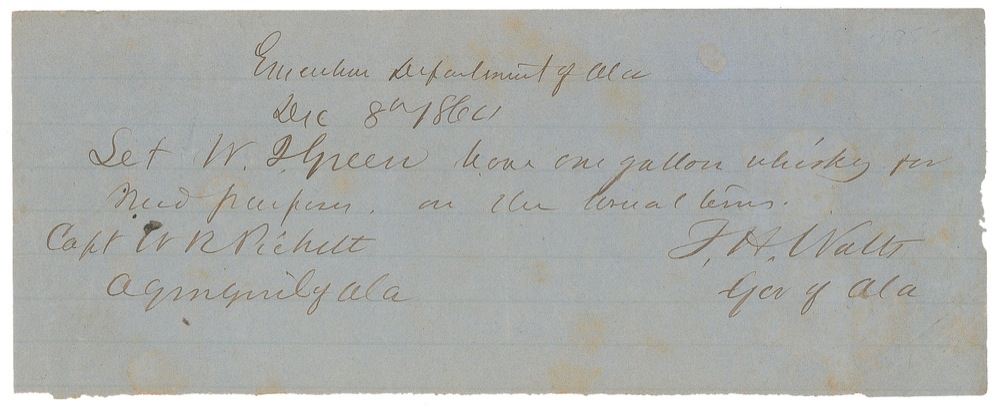 Executive Department of Ala
Dec 8th 1864
Let W. J. Green have one gallon whiskey for
Med purposes. on the usual terms.
Capt W R Pickett T. H. Watts
A Qr Mr Genl of Ala Gov of Ala